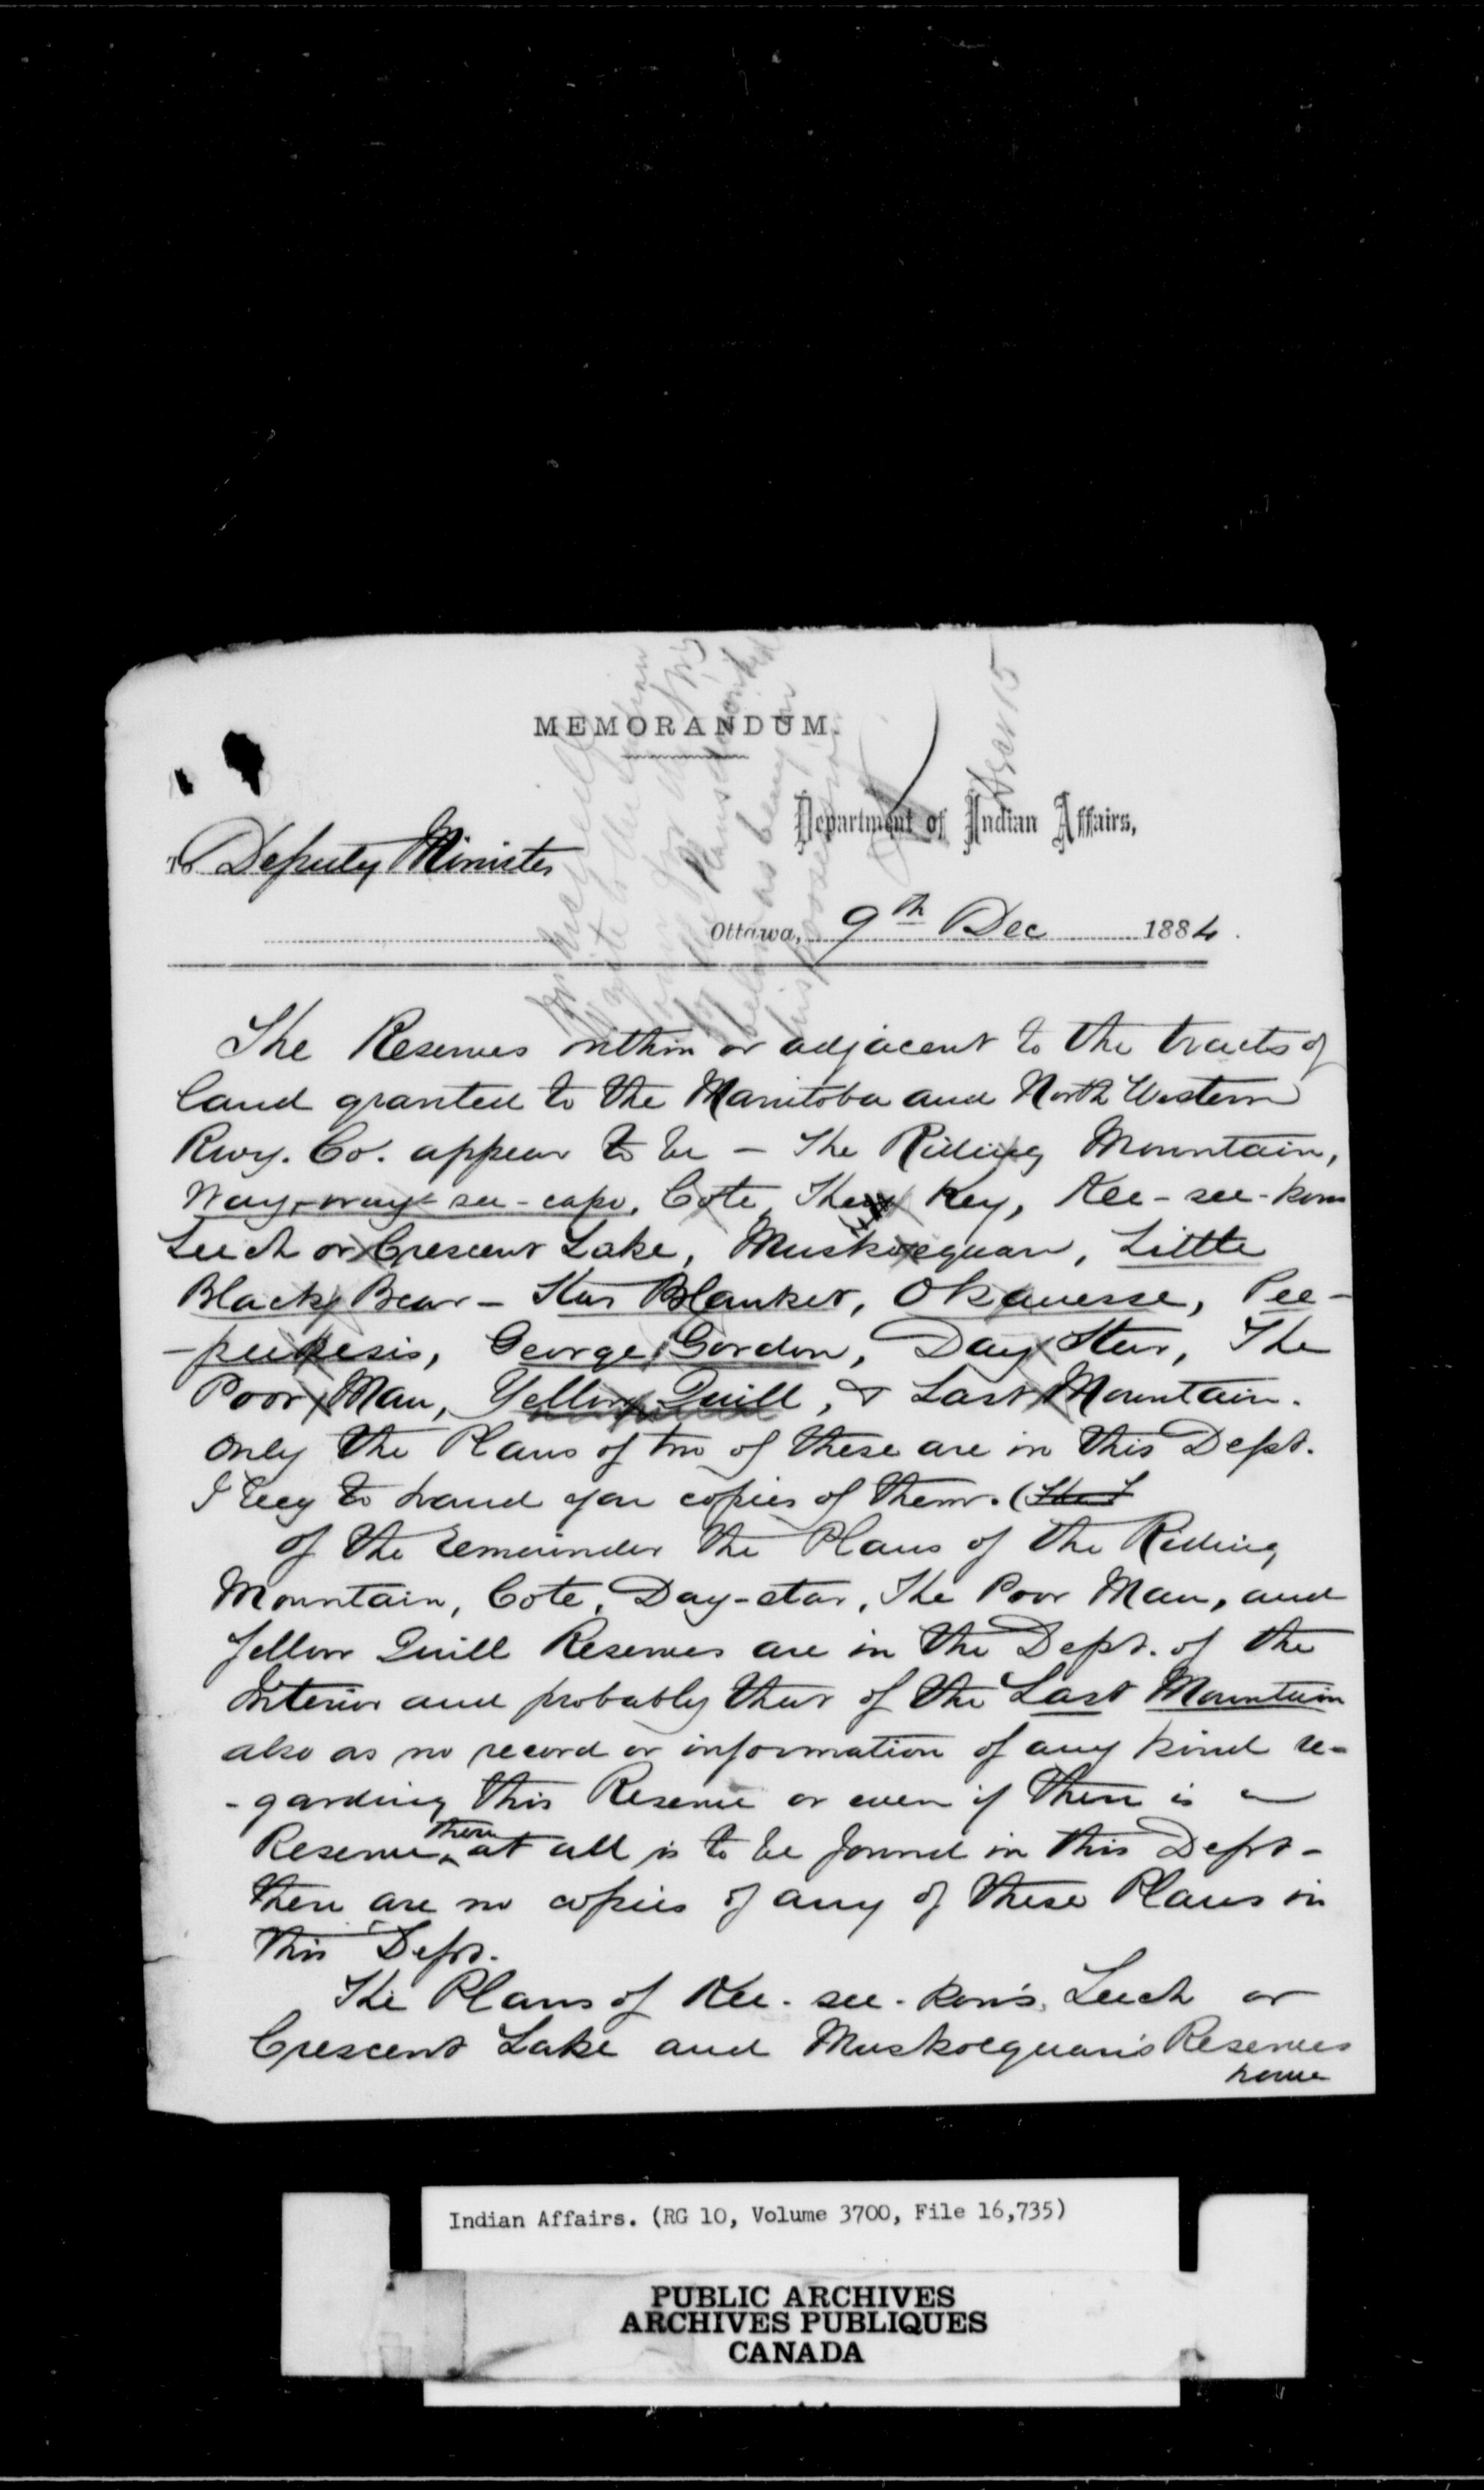 MEMORANDUM.
Department of Indian Affairs,
To Deputy Minister
Ottawa, 9th Dec 1884.
Dec 15
The Reserves within or adjacent to the tracts of
land granted to the Manitoba and North Western
Rwy. Co. appear to be - The Riding Mountain,
Way-way-see-capo, Cote, The Key, Kee-see-kons
Leech or Crescent Lake, Muskoequan, Little
Black Bear - Star Blanket, Okanesse, Pee-
-peekesis, George Gordon, Day Star, The
Poor Man, Yellow Quill, & Last Mountain.
Only the Plans of two of these are in this Dept.
I beg to hand you copies of them. (The
of the remainder the Plans of the Riding
Mountain, Cote, Day-star, The Poor Man, and
Yellow Quill Reserves are in the Dept. of the
Interior and probably that of the Last Mountain
also as no record or information of any kind re-
-garding this Reserve or even if there is a
Reserve there at all is to be found in this Dept-
there are no copies of any of these Plans in
this Dept.
The Plans of Kee-see-kon's, Leech or
Crescent Lake and Muskoequan's Reserves
have
Indian Affairs. (RG 10, Volume 3700, File 16,735)
PUBLIC ARCHIVES
ARCHIVES PUBLIQUES
CANADA